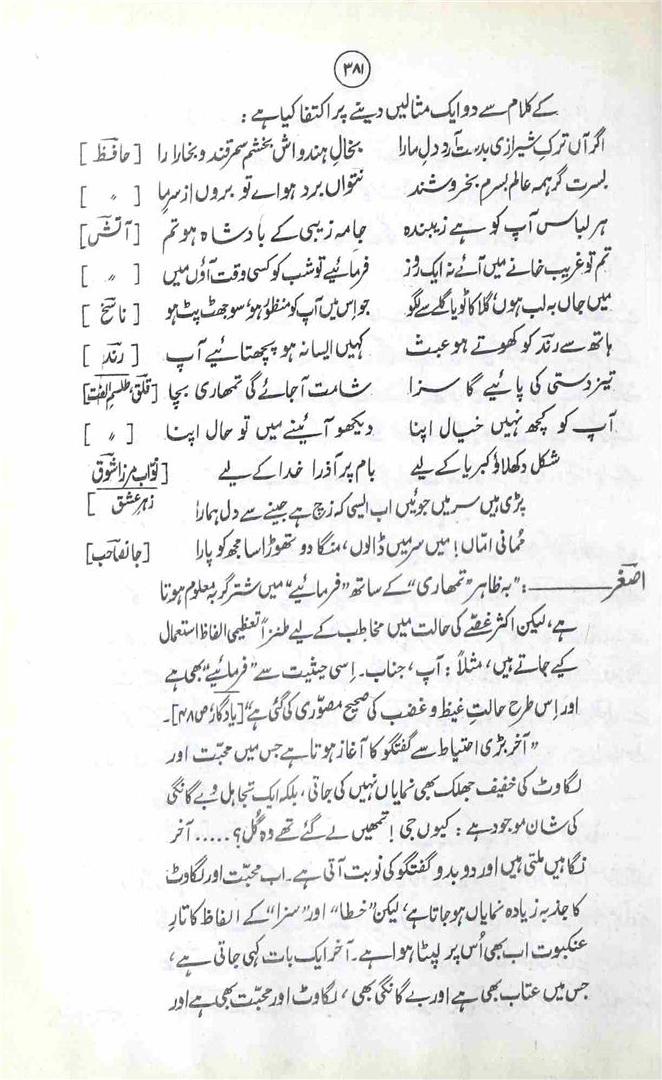 ۳۸۱
کے کلام سے دو ایک مثالیں دینے پر اکتفا کیا ہے :
اگر آں ترکِ شیرازی بدست آرد دلِ مارا بخالِ ہندواش بخشم سمرقند و بخارا را [حافظؔ]
بسرت گر ہمہ عالم بسرم بخروشند نتواں برد ہواے تو بروں از سرِما [ 〃 ]
ہر لباس آپ کو ہے زیبندہ جامہ زیبی کے بادشاہ ہو تم [آتشؔ]
تم تو غریب خانے میں آئے نہ ایک روز فرمائیے تو شب کو کسی وقت آؤں میں [ 〃 ]
میں جاں بہ لب ہوں، گلا کاٹو یا گلے سے لگو جو اِس میں آپ کو منظور ہو، سو جھٹ پٹ ہو [ناسخؔ]
ہاتھ سے رندؔ کو کھوتے ہو عبث کہیں ایسا نہ ہو پچھتائیے آپ [رندؔ]
تیز دستی کی پائیے گا سزا شامت آجائے گی تمھاری بچا [قلقؔ، طلسمِ الفت]
آپ کو کچھ نہیں خیال اپنا دیکھو آئینے میں تو حال اپنا [ 〃 ]
شکل دکھلاؤ کبریا کے لیے بام پر آذرا خدا کے لیے [نواب مرزا شوقؔ
زہرِ عشق]
پڑی ہیں سر میں جوئیں اب ایسی کہ زچ ہے جینے سے دل ہمارا
مُمانی امّاں! میں سر میں ڈالوں، منگا دو تھوڑا سا مجھ کو پارا [جانصاحب]
اصغرؔ ــــــ : "بہ ظاہر "تمھاری" کے ساتھ "فرمائیے" میں شتر گربہ معلوم ہوتا
ہے، لیکن اکثر غصّے کی حالت میں مخاطب کے لیے طنزاً تعظیمی الفاظ استعمال
کیے جاتے ہیں، مثلاً : آپ، جناب۔ اِسی حیثیت سے "فرمائیے" بھی ہے
اور اِس طرح حالتِ غیظ و غضب کی صحیح مصوّری کی گئی ہے" [یادگار ص ۴۸]۔
"آخر بڑی احتیاط سے گفتگو کا آغاز ہوتا ہے جس میں محبّت اور
لگاوٹ کی خفیف جھلک بھی نمایاں نہیں کی جاتی، بلکہ ایک تجاہل و بے گانگی
کی شان موجود ہے : کیوں جی! تمھیں لے گئے تھے وہ گُل؟..... آخر
نگاہیں ملتی ہیں اور دوبدو گفتگو کی نوبت آتی ہے۔ اب محبّت اور لگاوٹ
کا جذبہ زیادہ نمایاں ہو جاتا ہے، لیکن "خطا" اور "سزا" کے الفاظ کا تارِ
عنکبوت اب بھی اُس پر لپٹا ہوا ہے۔ آخر ایک بات کہی جاتی ہے،
جس میں عتاب بھی ہے اور بے گانگی بھی، لگاوٹ اور محبّت بھی ہے اور